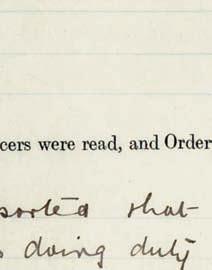 cers were read, and Order
ported that
s doing duty